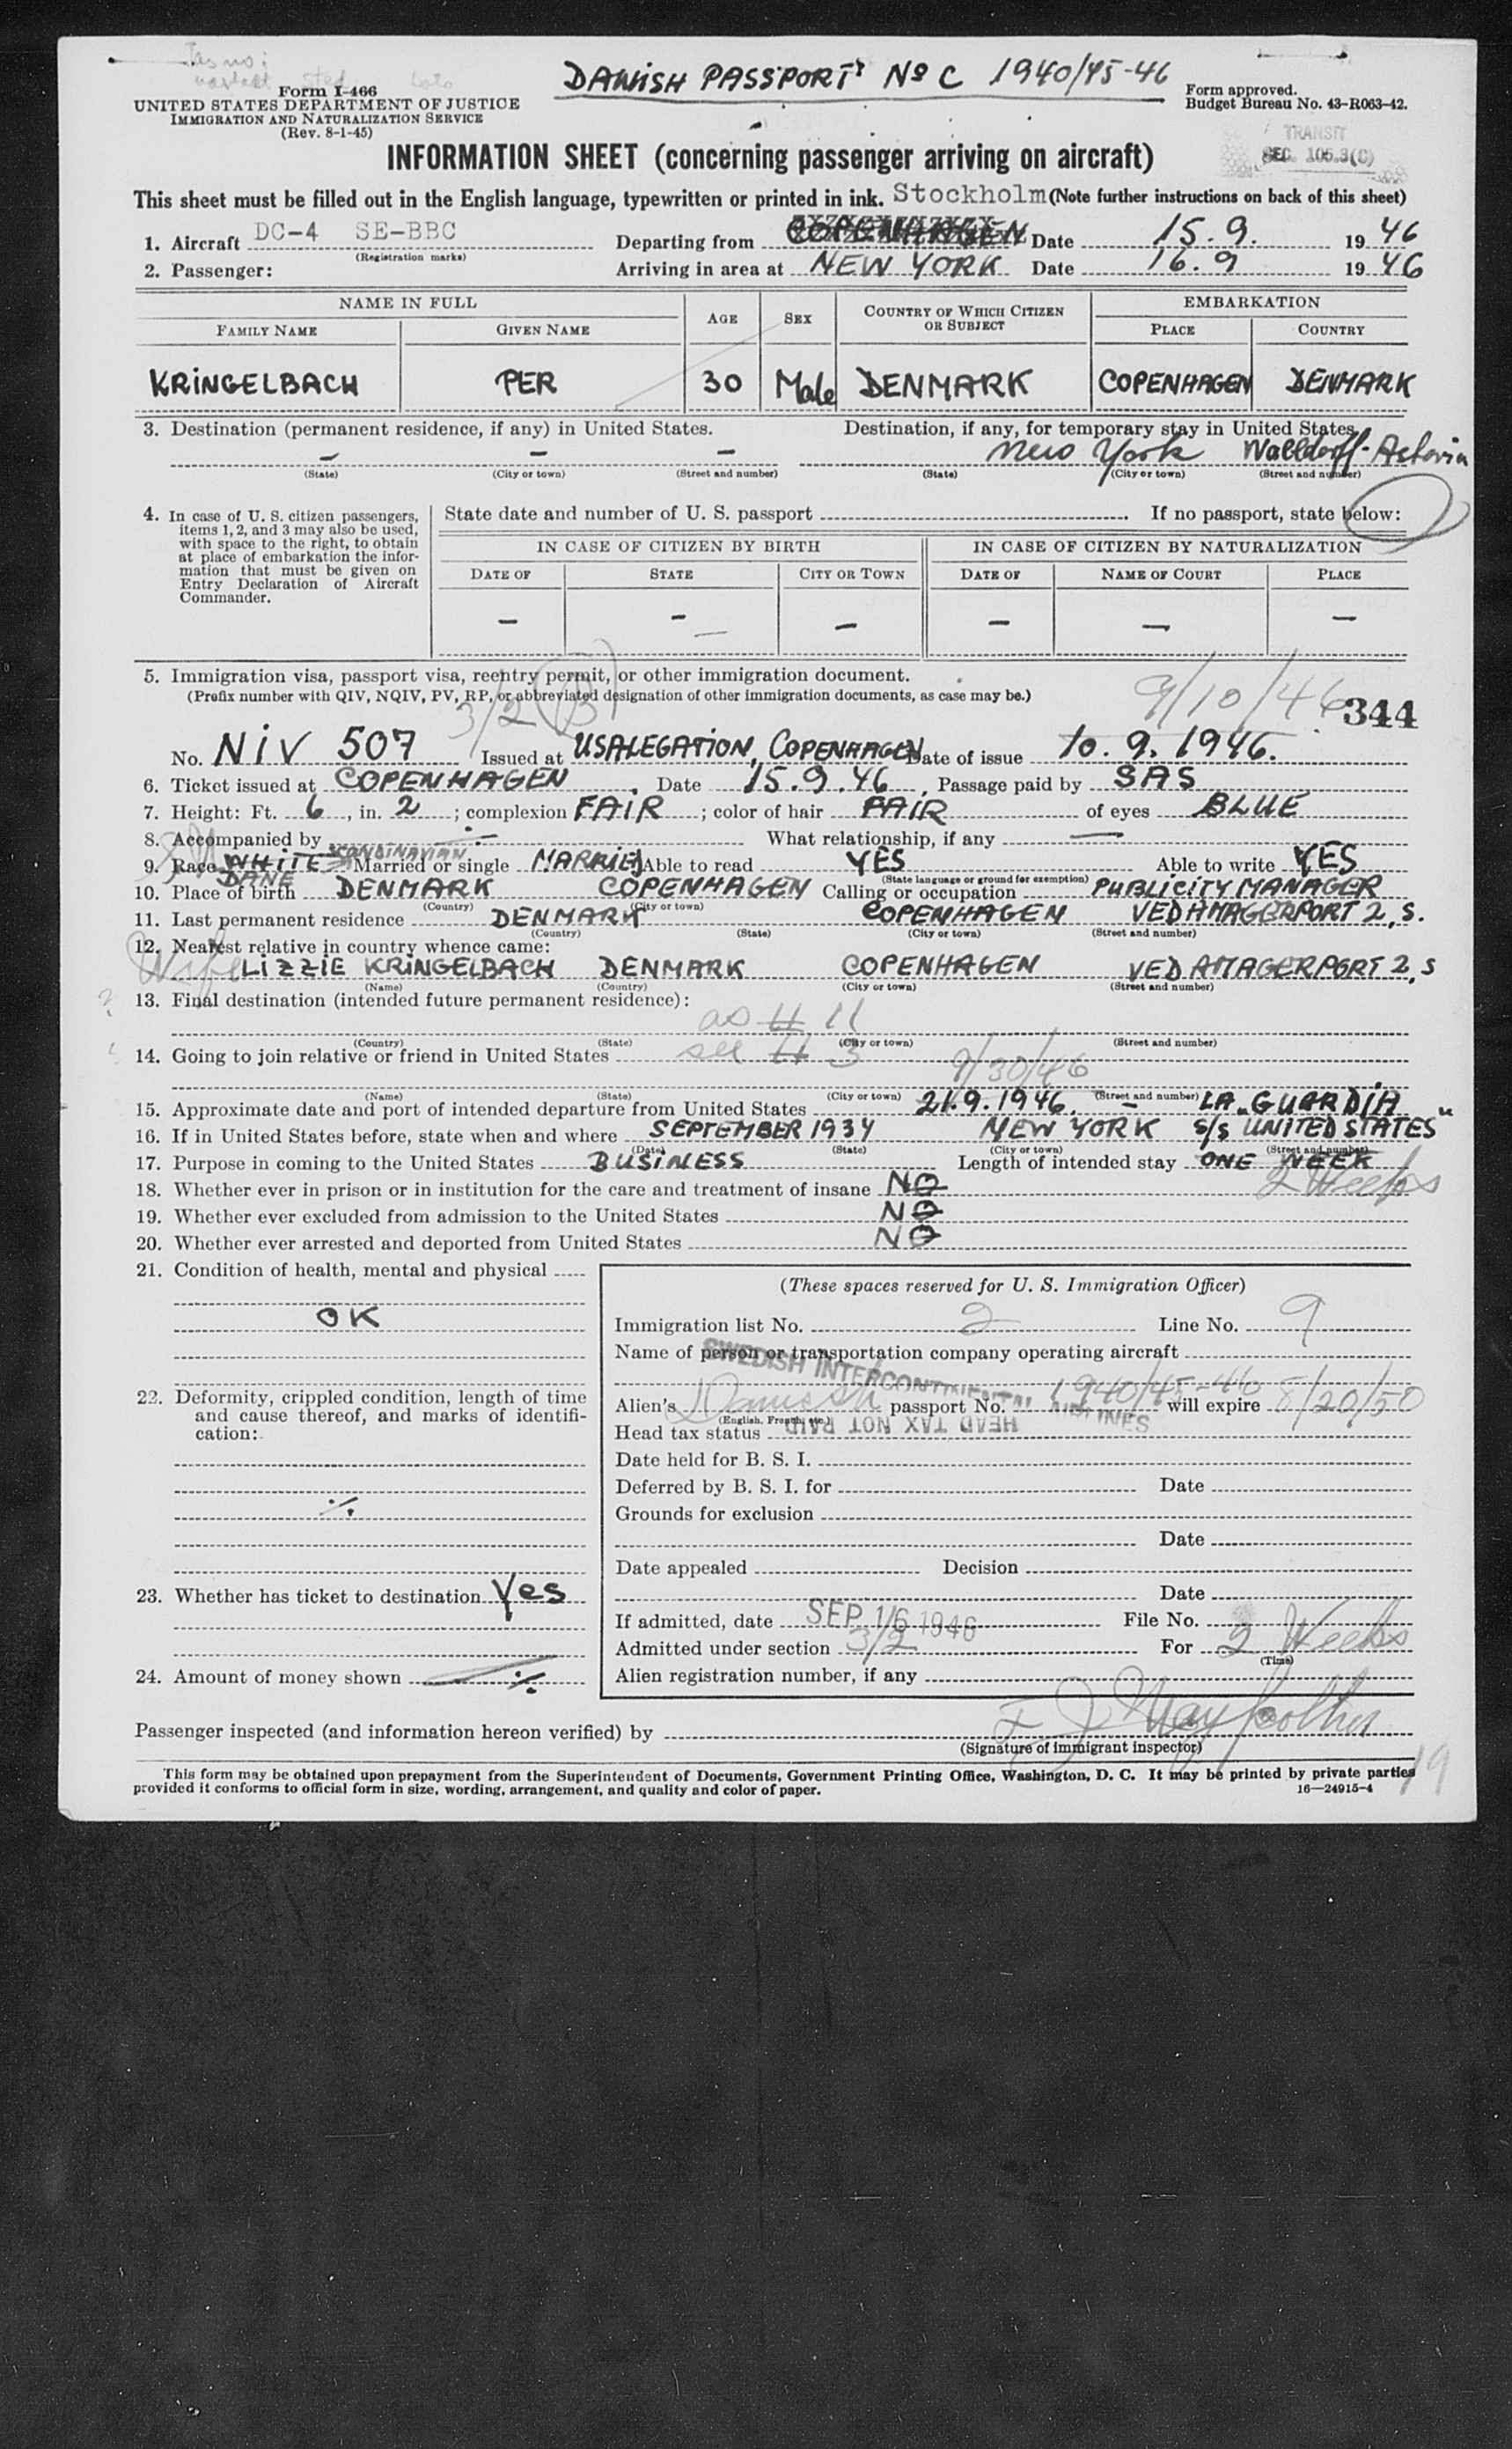 DANISH PASSPORT Nº C 1940/45-46
Form I-466
UNITED STATES DEPARTMENT OF JUSTICE
IMMIGRATION AND NATURALIZATION SERVICE
(Rev. 8-1-45)
Form approved.
Budget Bureau No. 43-R063-42.
TRANSIT
SEC. 105.3(C)
INFORMATION SHEET (concerning passenger arriving on aircraft)
This sheet must be filled out in the English language, typewritten or printed in ink. Stockholm (Note further instructions on back of this sheet)
1. Aircraft DC-4 SE-BBC Departing from COPENHAGEN Date 15.9. 19 46
(Registration marks)
2. Passenger: Arriving in area at NEW YORK Date 16.9 19 46
NAME IN FULL AGE SEX COUNTRY OF WHICH CITIZEN OR SUBJECT EMBARKATION
FAMILY NAME GIVEN NAME PLACE COUNTRY
KRINGELBACH PER 30 Male DENMARK COPENHAGEN DENMARK
3. Destination (permanent residence, if any) in United States. Destination, if any, for temporary stay in United States
– – – New York Walldorff-Astoria
(State) (City or town) (Street and number) (State) (City or town) (Street and number)
4. In case of U. S. citizen passengers, items 1, 2, and 3 may also be used, with space to the right, to obtain at place of embarkation the information that must be given on Entry Declaration of Aircraft Commander.
State date and number of U. S. passport If no passport, state below:
IN CASE OF CITIZEN BY BIRTH IN CASE OF CITIZEN BY NATURALIZATION
DATE OF STATE CITY OR TOWN DATE OF NAME OF COURT PLACE
– – – – – –
5. Immigration visa, passport visa, reentry permit, or other immigration document.
(Prefix number with QIV, NQIV, PV, RP, or abbreviated designation of other immigration documents, as case may be.)
3/2 (B) 9/10/46 344
No. NIV 507 Issued at USALEGATION, COPENHAGEN Date of issue 10.9.1946.
6. Ticket issued at COPENHAGEN, Date 15.9.46, Passage paid by SAS
7. Height: Ft. 6, in. 2; complexion FAIR; color of hair FAIR of eyes BLUE
8. Accompanied by ÷ What relationship, if any —
9. Race WHITE SCANDINAVIAN Married or single MARRIED Able to read YES Able to write YES
DANE (State language or ground for exemption)
10. Place of birth DENMARK COPENHAGEN Calling or occupation PUBLICITY MANAGER
(Country) (City or town)
11. Last permanent residence DENMARK COPENHAGEN VED AMAGERPORT 2, S.
(Country) (State) (City or town) (Street and number)
12. Nearest relative in country whence came:
Wife LIZZIE KRINGELBACH DENMARK COPENHAGEN VED AMAGERPORT 2, S
(Name) (Country) (City or town) (Street and number)
13. Final destination (intended future permanent residence):
as # 11
(Country) (State) (City or town) (Street and number)
14. Going to join relative or friend in United States see # 3
9/30/46
(Name) (State) (City or town) (Street and number)
15. Approximate date and port of intended departure from United States 21.9.1946. – LA GUARDIA
16. If in United States before, state when and where SEPTEMBER 1934 NEW YORK S/S "UNITED STATES"
(Date) (State) (City or town) (Street and number)
17. Purpose in coming to the United States BUSINESS Length of intended stay ONE WEEK
2 Weeks
18. Whether ever in prison or in institution for the care and treatment of insane NO
19. Whether ever excluded from admission to the United States NO
20. Whether ever arrested and deported from United States NO
21. Condition of health, mental and physical
OK
22. Deformity, crippled condition, length of time and cause thereof, and marks of identification:
·/.
23. Whether has ticket to destination Yes
24. Amount of money shown ·/.
(These spaces reserved for U. S. Immigration Officer)
Immigration list No. 2 Line No. 9
Name of person or transportation company operating aircraft
SWEDISH INTERCONTINENTAL AIRLINES
Alien's Danish passport No. 1940/45-46 will expire 8/20/50
(English, French, etc.)
Head tax status HEAD TAX NOT PAID
Date held for B. S. I.
Deferred by B. S. I. for Date
Grounds for exclusion
Date
Date appealed Decision
Date
If admitted, date SEP 16 1946 File No.
Admitted under section 3/2 For 2 Weeks
(Time)
Alien registration number, if any
Passenger inspected (and information hereon verified) by
(Signature of immigrant inspector)
This form may be obtained upon prepayment from the Superintendent of Documents, Government Printing Office, Washington, D. C. It may be printed by private parties
provided it conforms to official form in size, wording, arrangement, and quality and color of paper. 16—24915-4
19